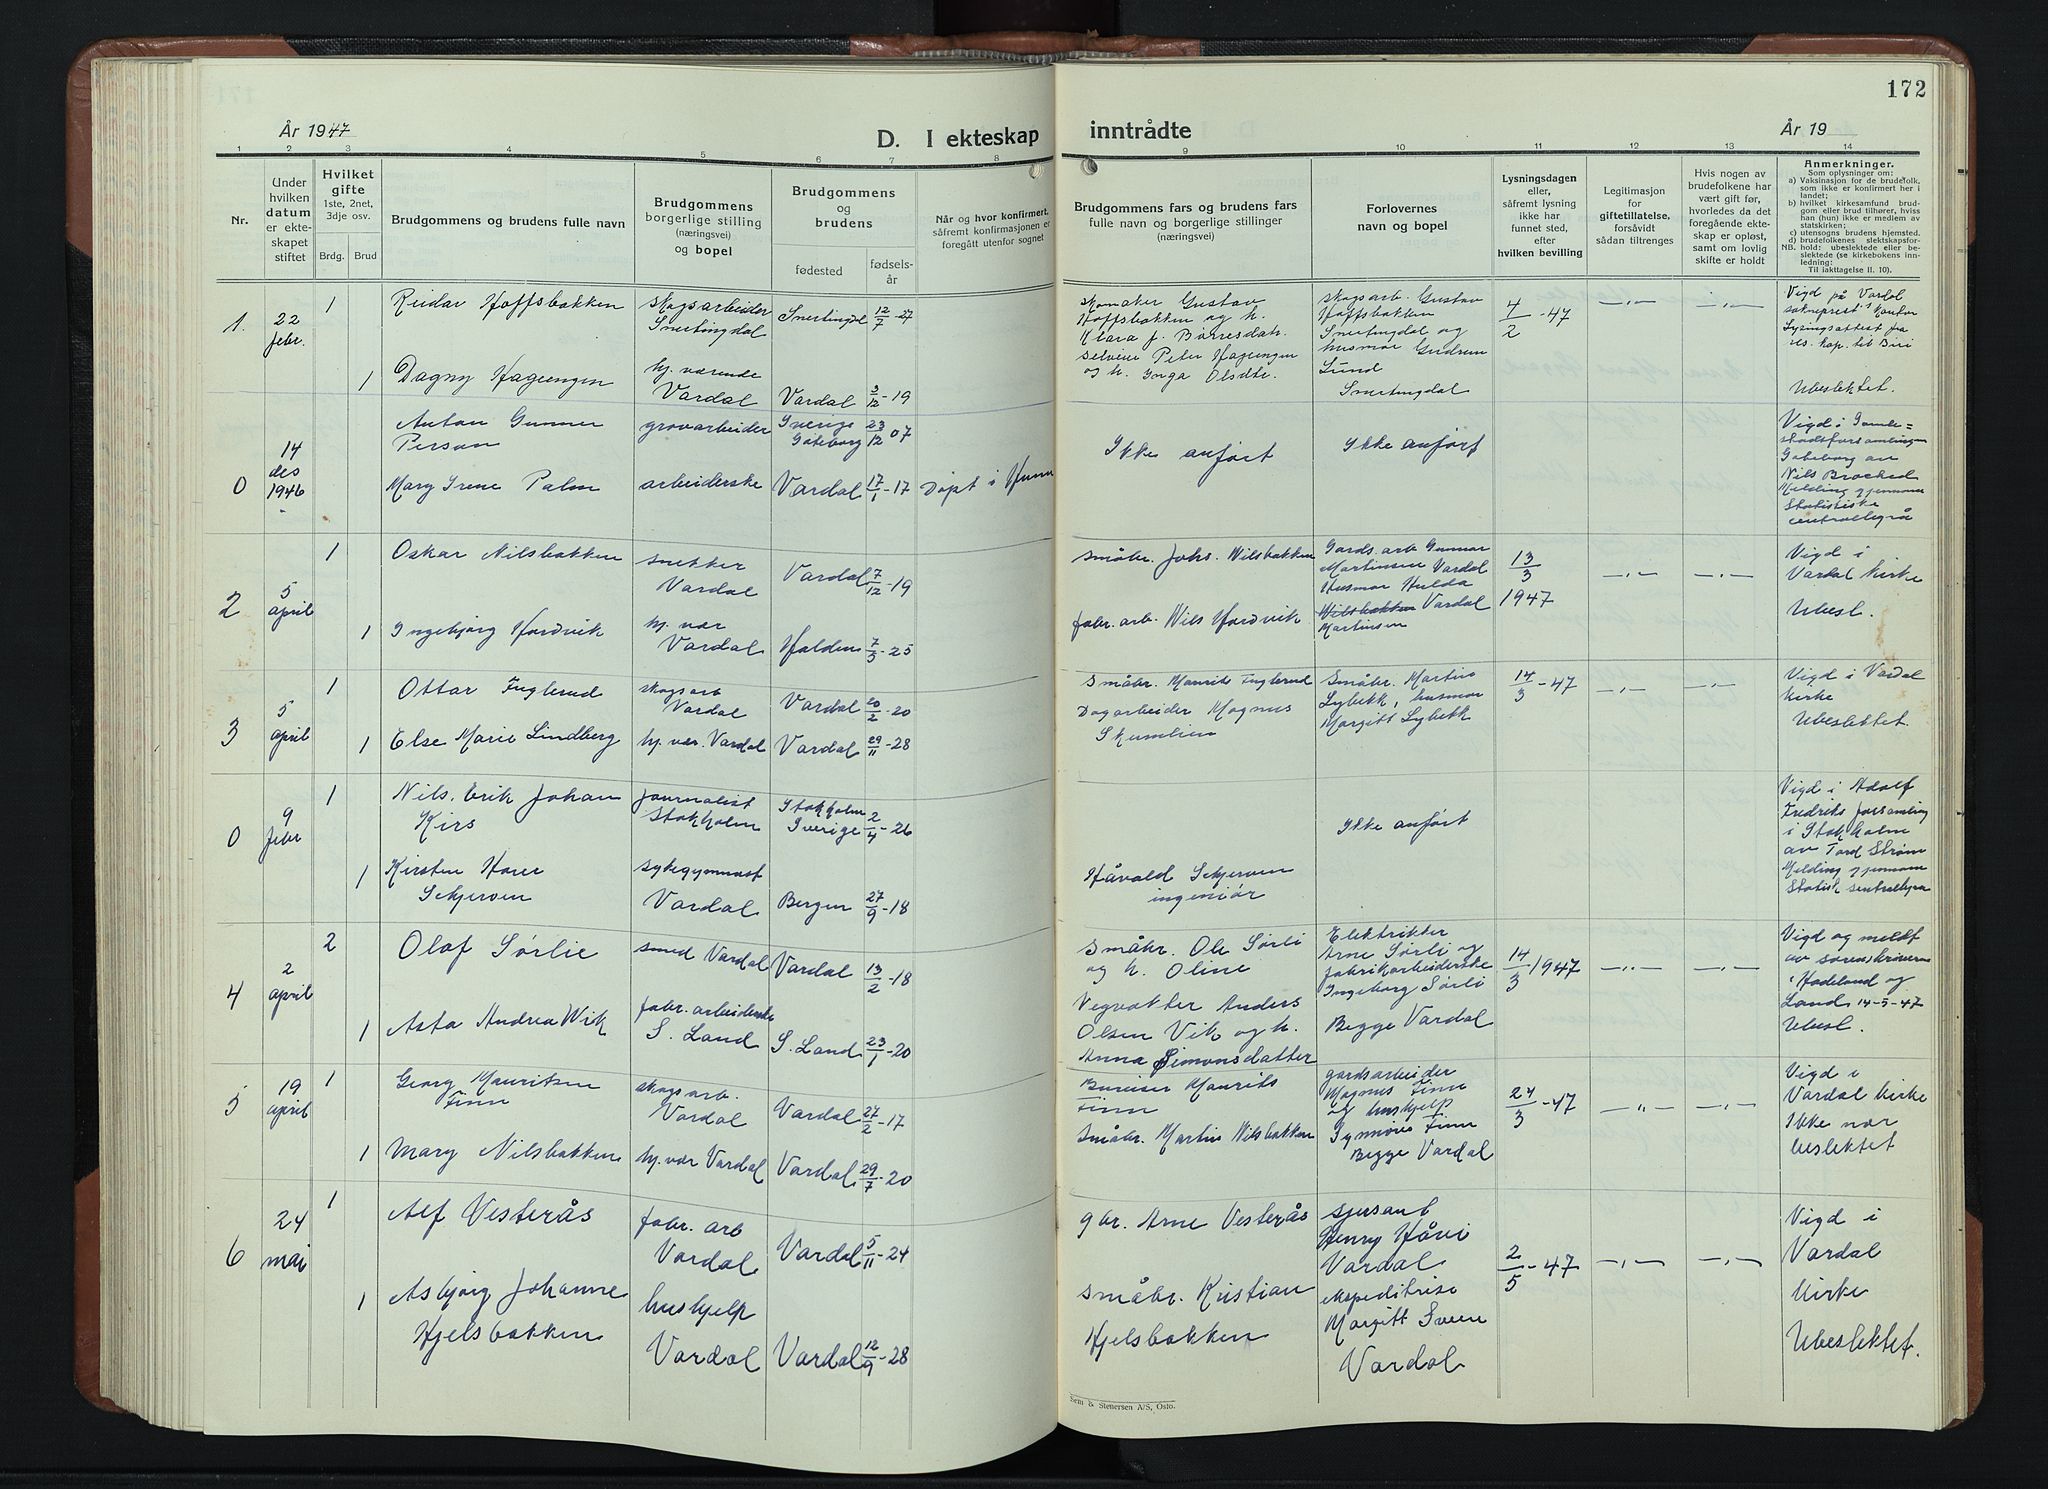 172
År 1947
D. I ekteskap inntrådte
År 19
1 2 3 4 5 6 7 8 9 10 11 12 13 14
Nr.
Under hvilken datum er ekteskapet stiftet
Hvilket gifte
1ste, 2net, 3dje osv.
Brdg. Brud
Brudgommens og brudens fulle navn
Brudgommens borgerlige stilling (næringsvei) og bopel
Brudgommens og brudens
fødested
fødsels-år
Når og hvor konfirmert, såfremt konfirmasjonen er foregått utenfor sognet
Brudgommens fars og brudens fars fulle navn og borgerlige stillinger (næringsvei)
Forlovernes navn og bopel
Lysningsdagen eller, såfremt lysning ikke har funnet sted, efter hvilken bevilling
Legitimasjon for giftetillatelse, forsåvidt sådan tiltrenges
Hvis nogen av brudefolkene har vært gift før, hvorledes da det foregående ekteskap er opløst, samt om lovlig skifte er holdt
Anmerkninger.
Som oplysninger om:
a) Vaksinasjon for de brudefolk, som ikke er konfirmert her i landet;
b) hvilket kirkesamfund brudgom eller brud tilhører, hviss han (hun) ikke er medlem av statskirken;
c) utensogns brudens hjemsted.
d) brudefolkenes slektskapsforhold: ubeslektede eller beslektede (se kirkebokens innledning:
NB. Til iakttagelse II. 10).
1. 22 febr.
1 Reidar Hoffsbakken
skogsarbeider Snertingdal
Snertingdal 12/7-27
1 Dagny Hagengen
hj. værende Vardal
Vardal 3/12-19
Skomaker Gustav
Hoffsbakken og h.
Klara f. Børresdatr.
selveier Peter Hagengen
og h. Inga Olsdtr.
skogsarb. Gustav
Hoffsbakken
Snertingdal og
husmor Gudrun
Lund
Snertingdal
4/2-47
Vigd på Vardal
sokneprest's kontor
Lysingsattest fra
res. kap. til Biri
Ubeslektet.
0 14 des 1946
Anton Gunner
Person
grovarbeider
Sverige Gøteborg 23/12 07
Mary Irene Palm
arbeiderske
Vardal 17/1-17
Døpt i Hunn
Ikke anført
Ikke anført
Vigd i Gamle=
stadsforsamlingen
Gøteborg av
Nils
Melding gjennom
Statistiske
centralbyrå
2 5 april
1 Oskar Nilsbakken
snekker Vardal
Vardal 7/12-19
1 Ingebjørg Hordvik
hj. vær Vardal
Halden 7/5-25
småbr. Johs. Nilsbakken
fabr. arb. Nils Hordvik
Gards. arb Gunnar
Martinsen Vardal
Husmor Hulda
Nilsbakken Vardal
Martinsen
13/3 1947
Vigd i
Vardal kirke
Ubesl.
3 5 april
1 Ottar Fuglerud
skogsarb Vardal
Vardal 20/2-20
1 Else Marie Lindberg
hj. vær. Vardal
Vardal 29/11-28
Småbr. Maurits Fuglerud
Dagarbeider Magnus
Skumlien
Småbr. Martius
Lybekk, husmor
Margitt Lybekk
14/3-47
Vigd i Vardal
kirke
Ubeslektet.
0 9 febr
1 Nils. Erik Johan
Kirs
Journalist Stokholm
Stokholm Sverige 2/4-26
1 Kirsten Horer
Sekjerven
sykegymnast Vardal
Bergen 27/9-18
Håvald Sekjerven
ingeniør
Ikke anført
Vigd i Adolf
Fredriks forsamling
i Stokholm
av Tord Strøm
Melding gjennom
Statist. sentralbyrå
4 2 april
2 Olaf Sørlie
smed Vardal
Vardal 13/2-18
1 Asta Andrea Wik
fabr. arbeiderske S. Land
S. Land 23/1-20
Småbr. Ole Sørli
og h. Oline
Vegvokter Anders
Olsen Vik og h.
Anna Simonsdatter
Elektriker
Arne Sørli og
fabrikarbeiderske
Ingeborg Sørli
Begge Vardal
14/3 1947
Vigd og meldt
av sorenskriveren
i Hadeland og
Land 14-5-47
Ubesl.
5 19 april
1 Georg Mauritsen
Finn
skogsarb. Vardal
Vardal 27/2-17
1 Mary Nilsbakken
hj. vær Vardal
Vardal 29/7-20
Bureiser Maurits
Finn
Småbr. Martin Nilsbakken
gardsarbeider
Magnus Finn
og hushjelp
Synnøve Finn
Begge Vardal
24/3-47
Vigd i
Vardal kirke
Ikke nær
beslektet
6 24 mai
1 Alf Vesterås
fabr. arb Vardal
Vardal 5/11-24
1 Asbjørg Johanne
Hjelsbakken
hushjelp Vardal
Vardal 12/9-28
gbr. Arne Vesterås
småbr. Kristian
Hjelsbakken
sjersant
Henry Håvi
Vardal
ekspeditrise
Margitt Sveen
Vardal
2/5-47
Vigd i
Vardal
Kirke
Ubeslektet.
Sem & Stenersen A/S, Oslo.